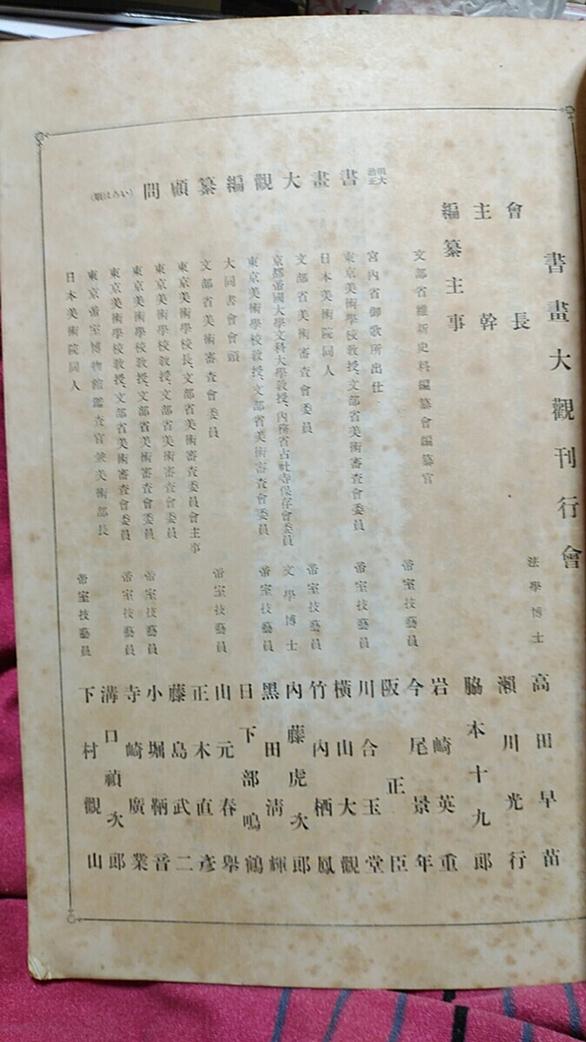 書畫大觀刊行會
會長 法學博士 高田早苗
主幹 瀨川光行
編纂主事 脇本十九郎
文部省維新史料編纂會編纂官 岩崎英重
明治大正書畫大觀編纂顧問(いろは順)
帝室技藝員 今尾景年
宮內省御歌所出仕 阪正臣
東京美術學校教授、文部省美術審査會委員 帝室技藝員 川合玉堂
日本美術院同人 橫山大觀
文部省美術審査會委員 帝室技藝員 竹內栖鳳
京都帝國大學文科大學教授、內務省古社寺保存會委員 文學博士 內藤虎次郎
東京美術學校教授、文部省美術審査會委員 帝室技藝員 黑田淸輝
大同書會會頭 日下部鳴鶴
文部省美術審査會委員 帝室技藝員 山元春擧
東京美術學校長、文部省美術審査委員會主事 正木直彥
東京美術學校教授、文部省美術審査會委員 藤島武二
東京美術學校教授、文部省美術審査會委員 帝室技藝員 小堀鞆音
東京美術學校教授、文部省美術審査會委員 帝室技藝員 寺崎廣業
東京帝室博物館鑑査官兼美術部長 溝口禎次郎
日本美術院同人 帝室技藝員 下村觀山